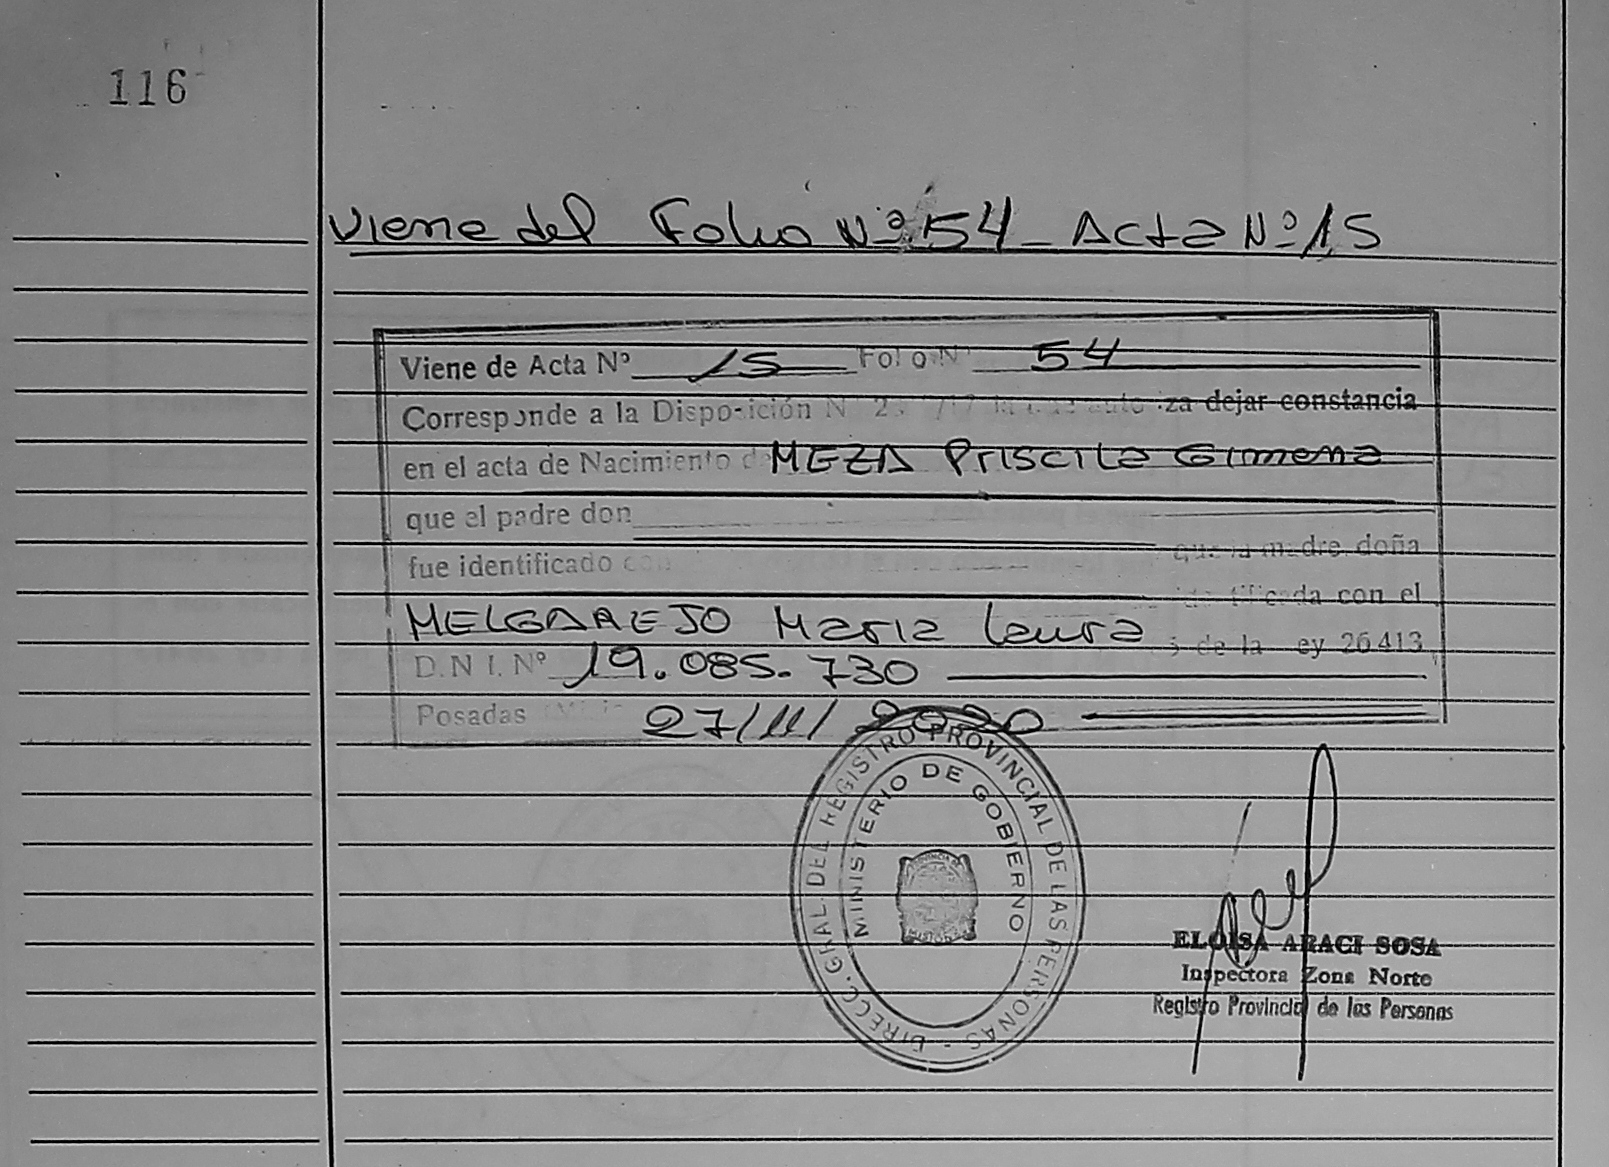 116
Viene del Folio Nº 54 - Acta Nº 15
Viene de Acta Nº 15 Folio Nº 54
Corresponde a la Disposición N dejar constancia
en el acta de Nacimiento de MEZA Priscila Gimena
que el padre don
fue identificado con que la madre doña
identificada con el
MELGAREJO Maria Laura de la ley 26413
D.N.I. Nº 19.085.730
Posadas 27/11/2020
DIRECC. GRAL. DEL REGISTRO PROVINCIAL DE LAS PERSONAS -
MINISTERIO DE GOBIERNO
ELOISA ARACI SOSA
Inspectora Zona Norte
Registro Provincial de las Personas